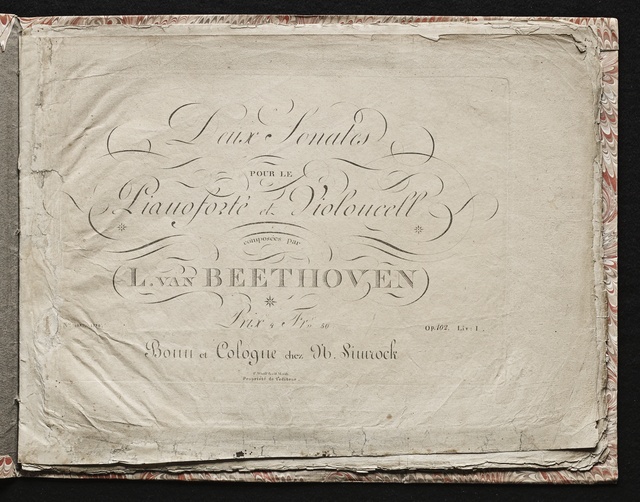 Deux Sonates
POUR LE
Pianoforte et Violoncell
composées par
L. VAN BEETHOVEN
Prix 4 Frs 50
Op. 102. Liv: 1.
Bonn et Cologne chez N. Simrock
Propriété de l'éditeur